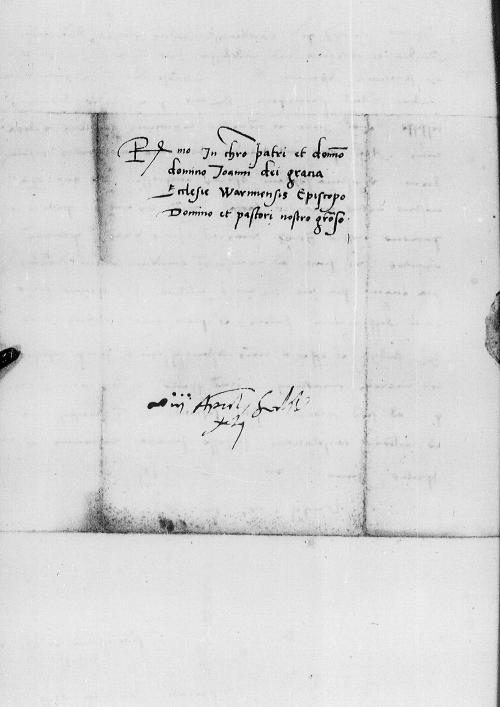 Rmo In chro patri et domino
domino Joanni dei gracia
Ecclesie Warmiensis Episcopo
Domino et pastori nostro groso
viij Aprilis